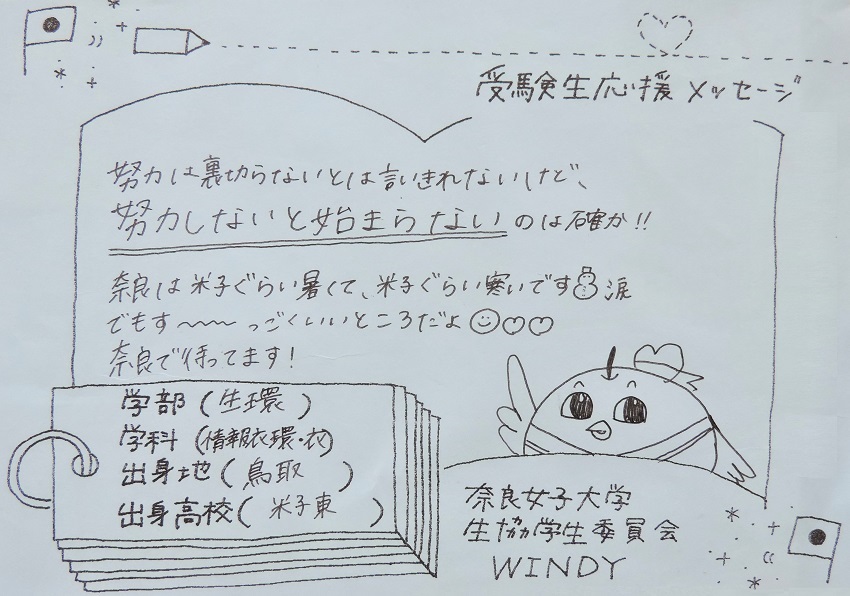 受験生応援メッセージ
努力は裏切らないとは言いきれないけど、
努力しないと始まらないのは確か!!
奈良は米子ぐらい暑くて、米子ぐらい寒いです涙
でもす〜〜〜っごくいいところだよ
奈良で待ってます!
学部(生環)
学科(情報衣環・衣)
出身地(鳥取)
出身高校(米子東)
奈良女子大学
生協学生委員会
WINDY